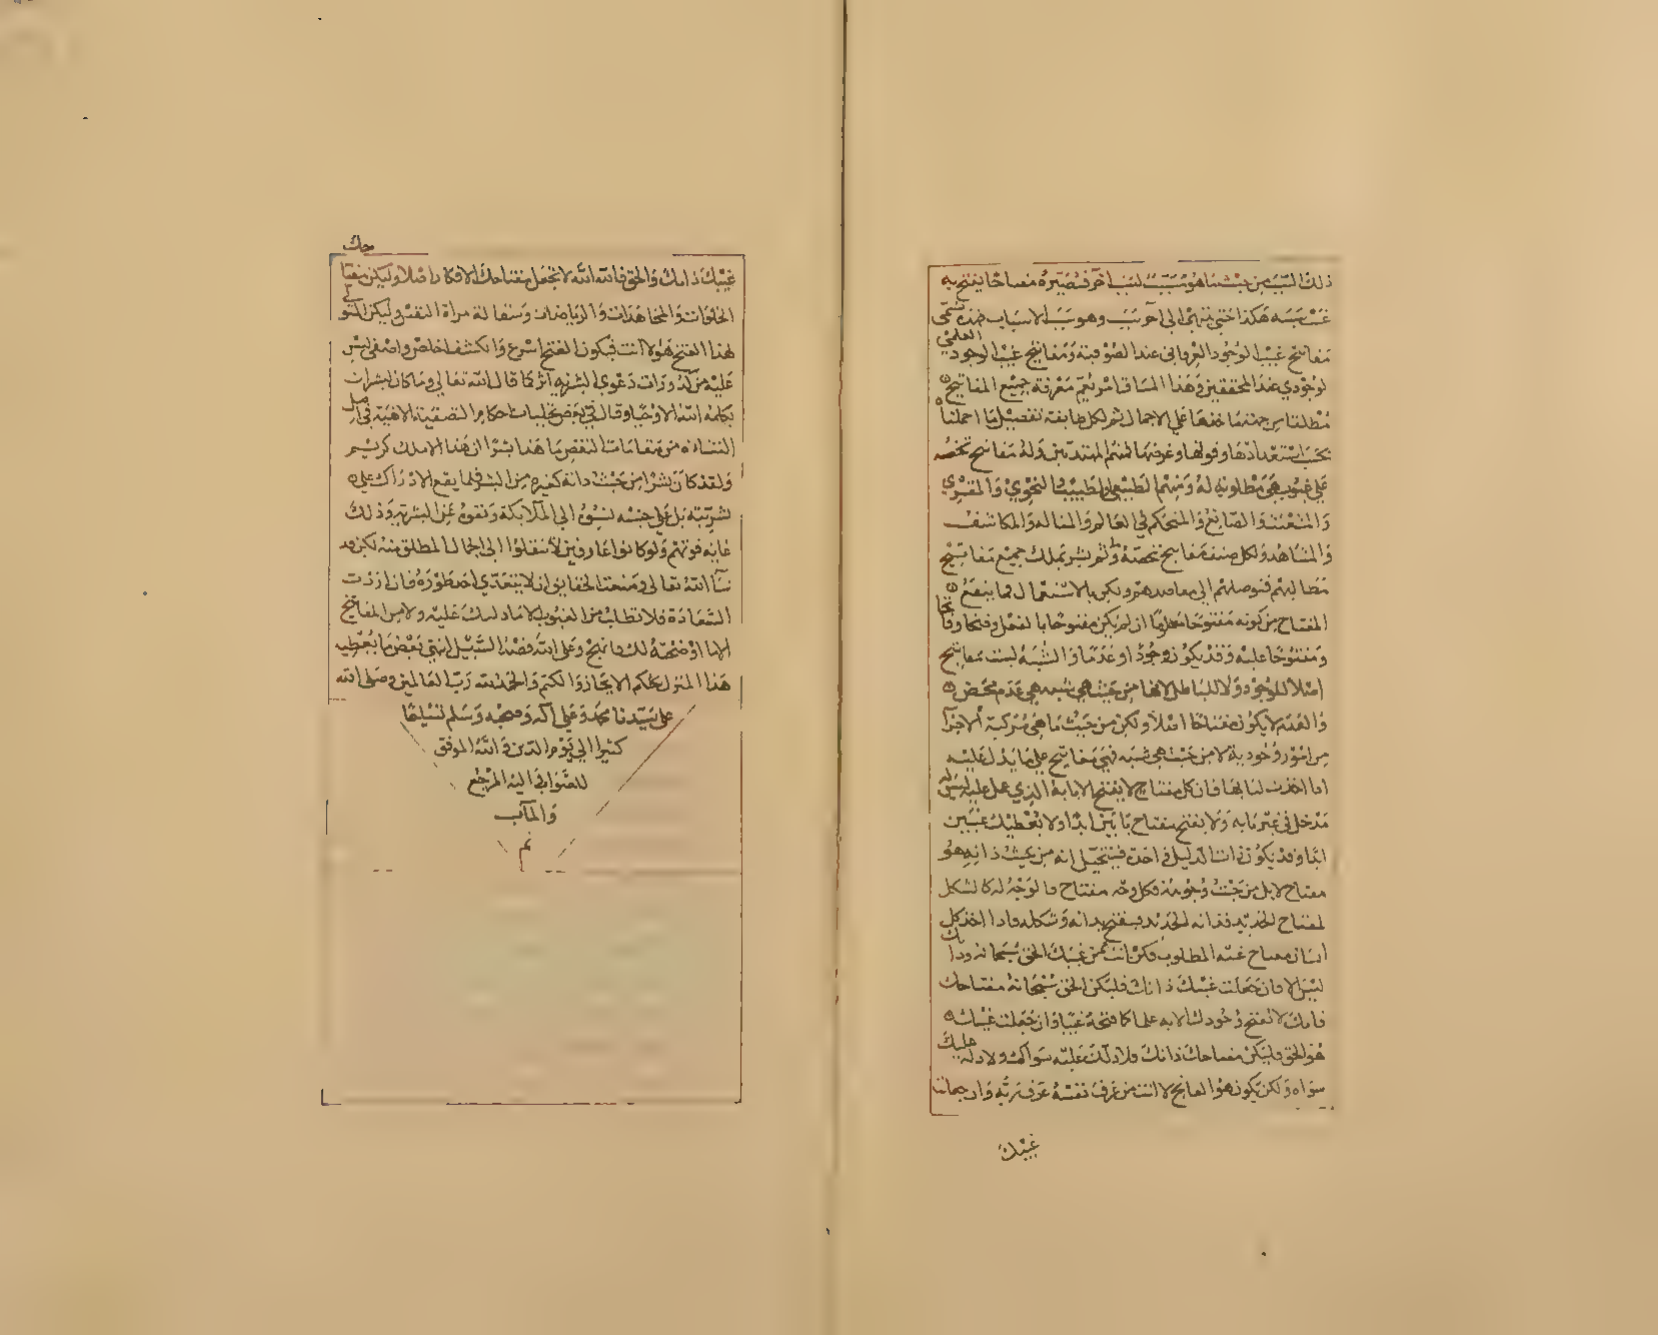 ذلك السبب من حيث ما هو مسبب لسبب آخر فتصيره مفتاحا يفتح به
غيب سببه هكذا حتى ينتهى الى آخر سبب وهو سبب الاسباب فهذه تسمى
مفاتيح غيب الوجود العرفانى عند الصوفية ومفاتيح غيب الوجود العلمى
الوجودي عند المحققين وهذا المساق امر يعم معرفة جميع المفاتيح
مطلقا من جهة ما على الاجمال ثم لكل طايفة تفصيل ما اجملنا
بحسب استعدادها وقولها وغرضها فمنهم المهندس وله مفاتيح تخصه
على غيوب هى مطلوبة له ومنهم الطبيعى والطبيب والنحوي والمقري
والصانع والمتحكم في العالم والمكاشف
والمشاهد ولكل صنف مفاتيح تخصه ولم نشر بملك جميع مفاتيح
مطالبهم فتوصلهم الى مقاصدهم ولكن بالاستعمال لها ينفع
المفتاح من كونه مفتوحا ان لم يكن مفتوحا بالفعل وفتحا وفاتحا
ومفتوحا عليه وقد يكون وجودا او عدما والشبه ليست مفاتيح
اصلا للوجود ولا للباطل لانها من حيث هي شبه هي عدم محض
والعدم لا يكون مفتاحا اصلا ولكن من حيث ما هى مركبة الاجزا
من امور وجودية لا من حيث هي شبه فهى مفاتيح على ما يدل عليه
لا يفتح الا بابه الذي عمل عليه ليس له
مدخل في غير بابه ولا يفتح مفتاح بابين ابدا ولا يعطيك غيبين
ابدا وقد يكون ذات الدليل واحدة فيتخيل انه من حيث ذاته هو
مفتاح لا بل من حيث وجوهه فكل وجه مفتاح فالوجه له كالشكل
لمفتاح الحديد يفتح بذاته وشكله فاذا اخذ كل
انسان مفتاح غيبه المطلوب فكن انت ممن غيبك الحق سبحانه وذاتك
ليس الا فان جعلت غيبك ذاتك فليكن الحق سبحانه مفتاحك
فانك لا تفتح وجودك الا به علما كما فتحه عينا وان جعلت غيبك
هو الحق فليكن مفتاحك ذاتك فلا دليل عليه سواك ولا دليل عليك
سواه ولكن يكون هو الفاتح لا انت من عرف نفسه عرف ربه وان جعلت
غيبك
غيبك ذاتك والحق فالله الله لا تجعل مفتاحك الافكار اصلا وليكن مفتاحك
الخلوات والمجاهدات والرياضات وصقالة مرآة النفس وليكن المتولى
لهذا الفتح هو لا انت فيكون الفتح اسرع والكشف اخلص واصفى ليس
عليه من كدورات دعوى البشرية اثر كما قال الله تعالى وما كان لبشر ان
يكلمه الله الا وحيا وقال في بعض تجليات احكام التصفية الالهية في اصل
النشاة من مقامات النقص ما هذا بشرا ان هذا الا ملك كريم
ولقد كان بشرا من حيث ذاته كغيره من البشر فلما يقع الادراك على
بشريته بل على جنسه لسموه الى الملائكة ونفوه عن البشرية وذلك
غاية قوتهم ولو كانوا عارفين لانتقلوا الى الجمال المطلق منه لكن قد
شآ الله تعالى ومنعت الحقايق ان لا يتعدى احد طوره فان اردت
السعادة فلا تطلب من الغيوب الا ما دللتك عليه ولا من المفاتيح
الا ما اوضحته لك فانجح وعلى الله قصد السبيل انتهى بعض ما يعطيه
هذا المنزل بحكم الايجاز والكتم والحمد لله رب العالمين وصلى الله
على سيدنا محمد وعلى آله وصحبه وسلم تسليما
كثيرا الى يوم الدين والله الموفق
للصواب واليه المرجع
والمآب
تم